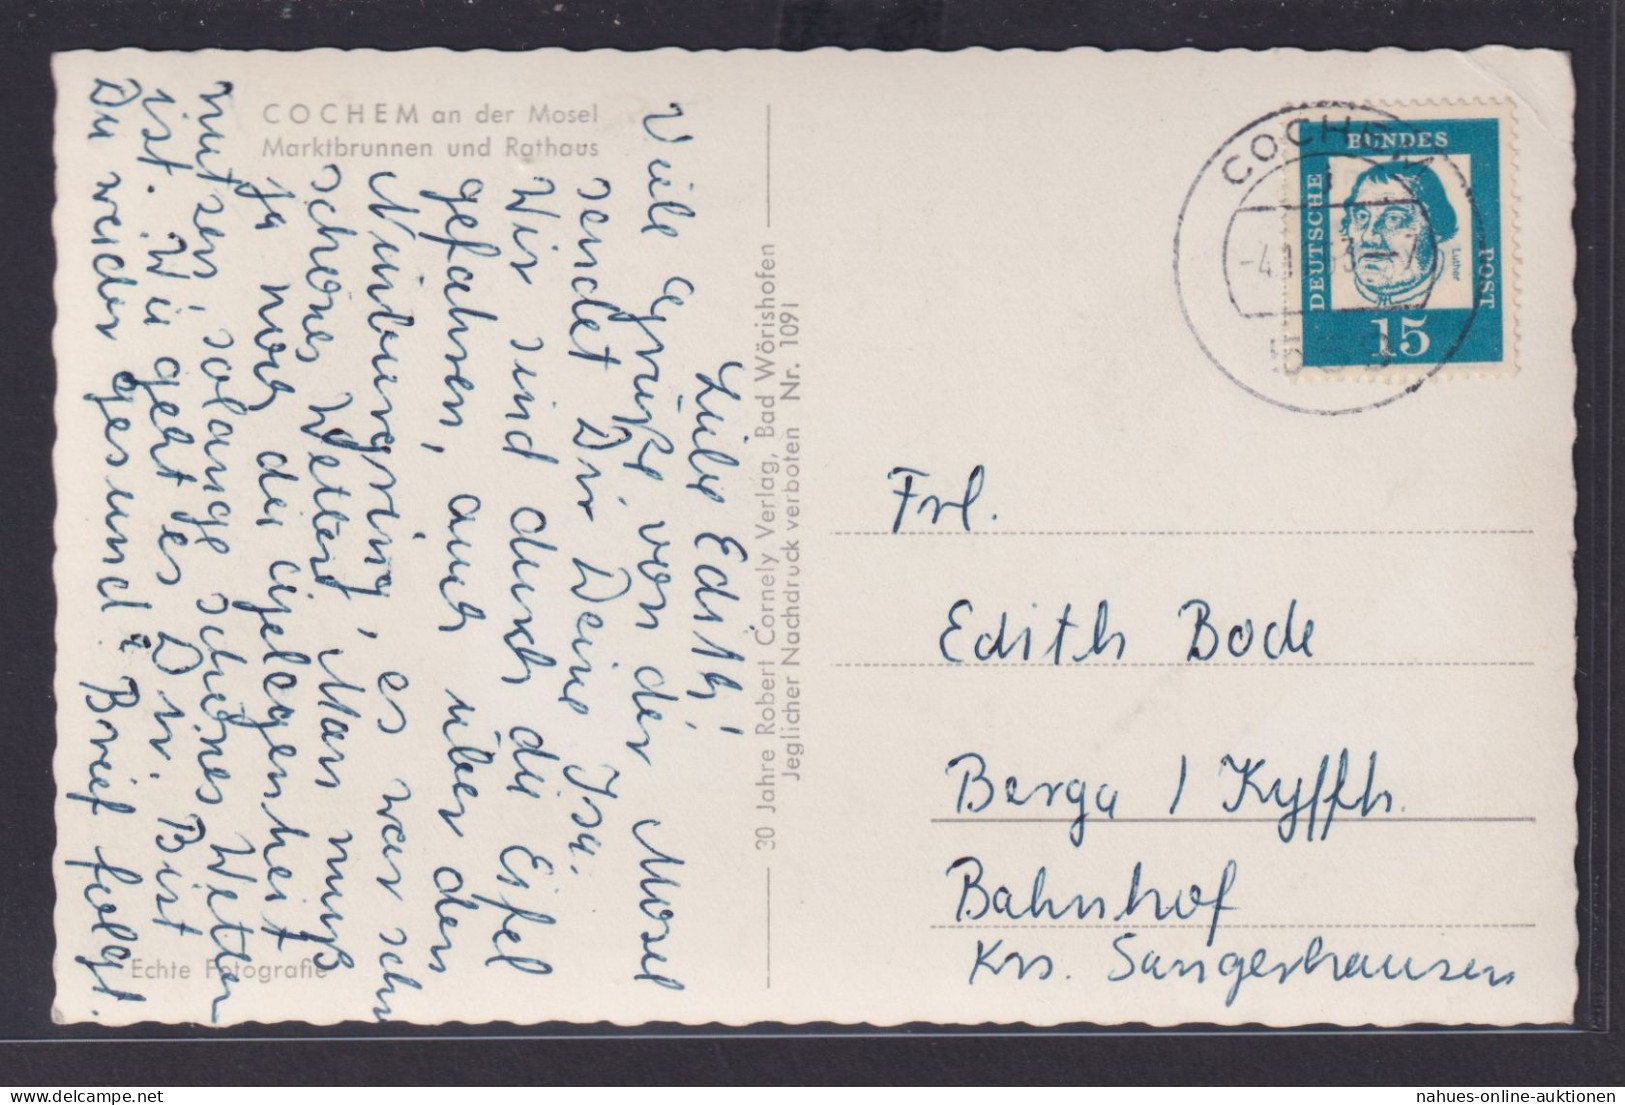 COCHEM an der Mosel
Marktbrunnen und Rathaus
Liebe Edith!
Viele Grüße von der Mosel
sendet Dir Deine Isa.
Wir sind durch die Eifel
gefahren, auch über den
Nürburgring, es war sehr
schönes Wetter. Man muß
ja noch die Gelegenheit
nutzen, solange schönes Wetter
ist. Wie geht es Dir. Bist
Du wieder gesund? Brief folgt.
Echte Fotografie
30 Jahre Robert Cornely Verlag, Bad Wörishofen
Jeglicher Nachdruck verboten Nr. 1091
COCHEM
DEUTSCHE
BUNDES
POST
Luther
15
Frl.
Edith Bode
Berga / Kyffh.
Bahnhof
Krs. Sangerhausen
nahues-online-auktionen